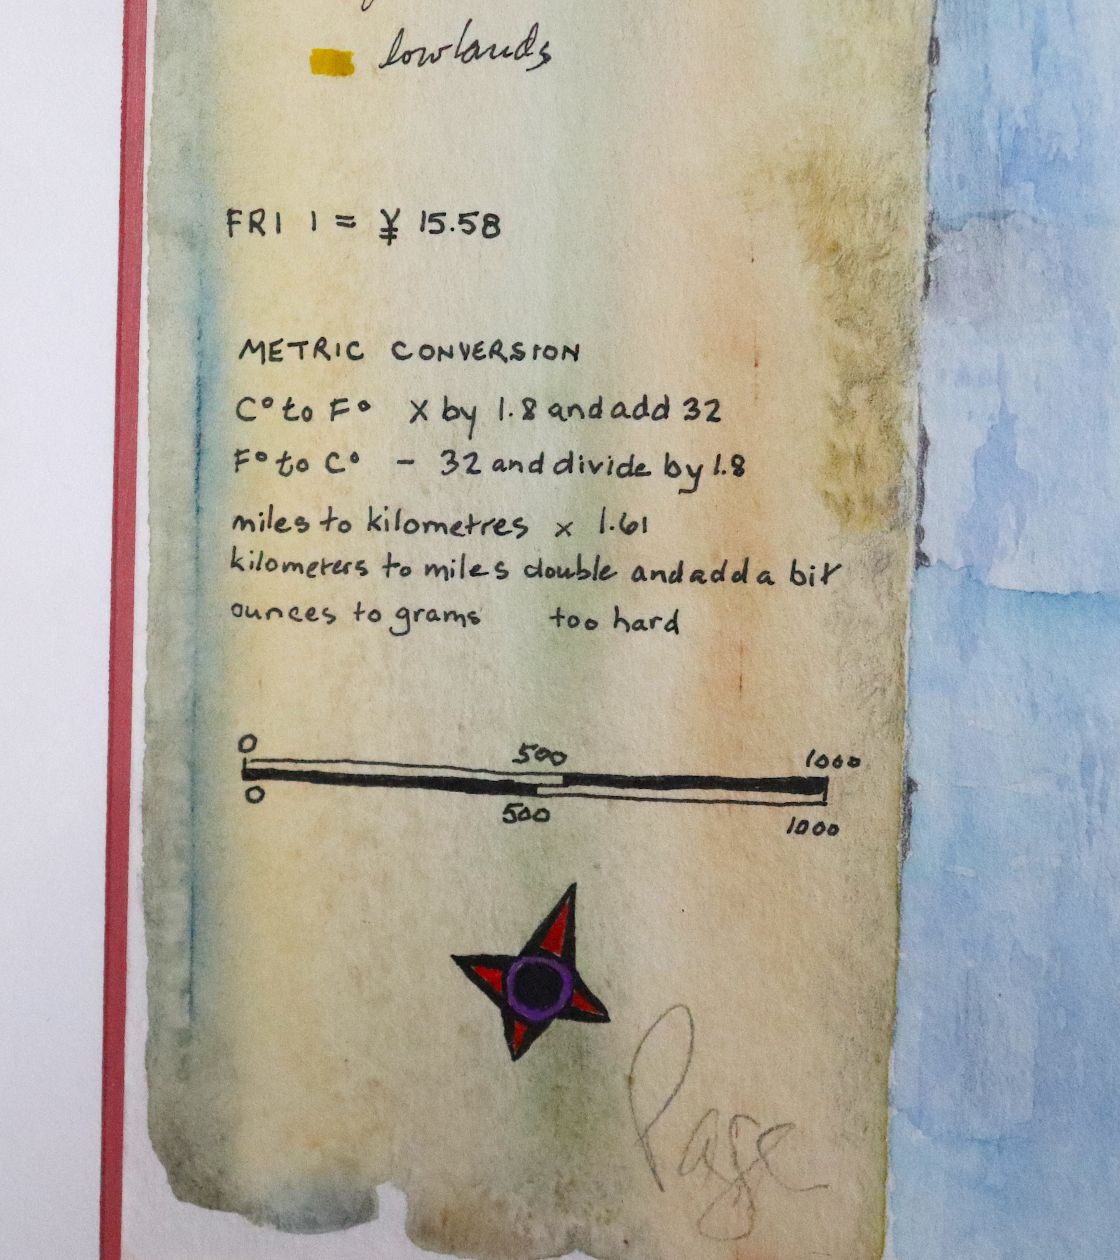 lowlands
FRI 1 = ¥ 15.58
METRIC CONVERSION
C° to F° X by 1.8 and add 32
F° to C° - 32 and divide by 1.8
miles to kilometres x 1.61
kilometers to miles double and add a bit
ounces to grams too hard
0 500 1000
0 500 1000
Page